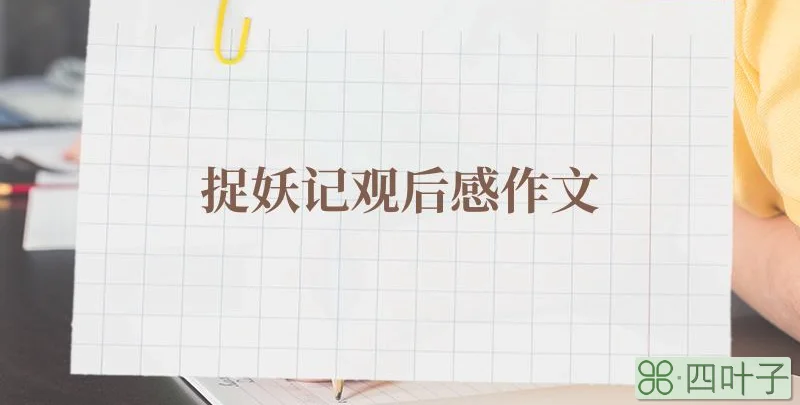 捉妖记观后感作文
四叶子